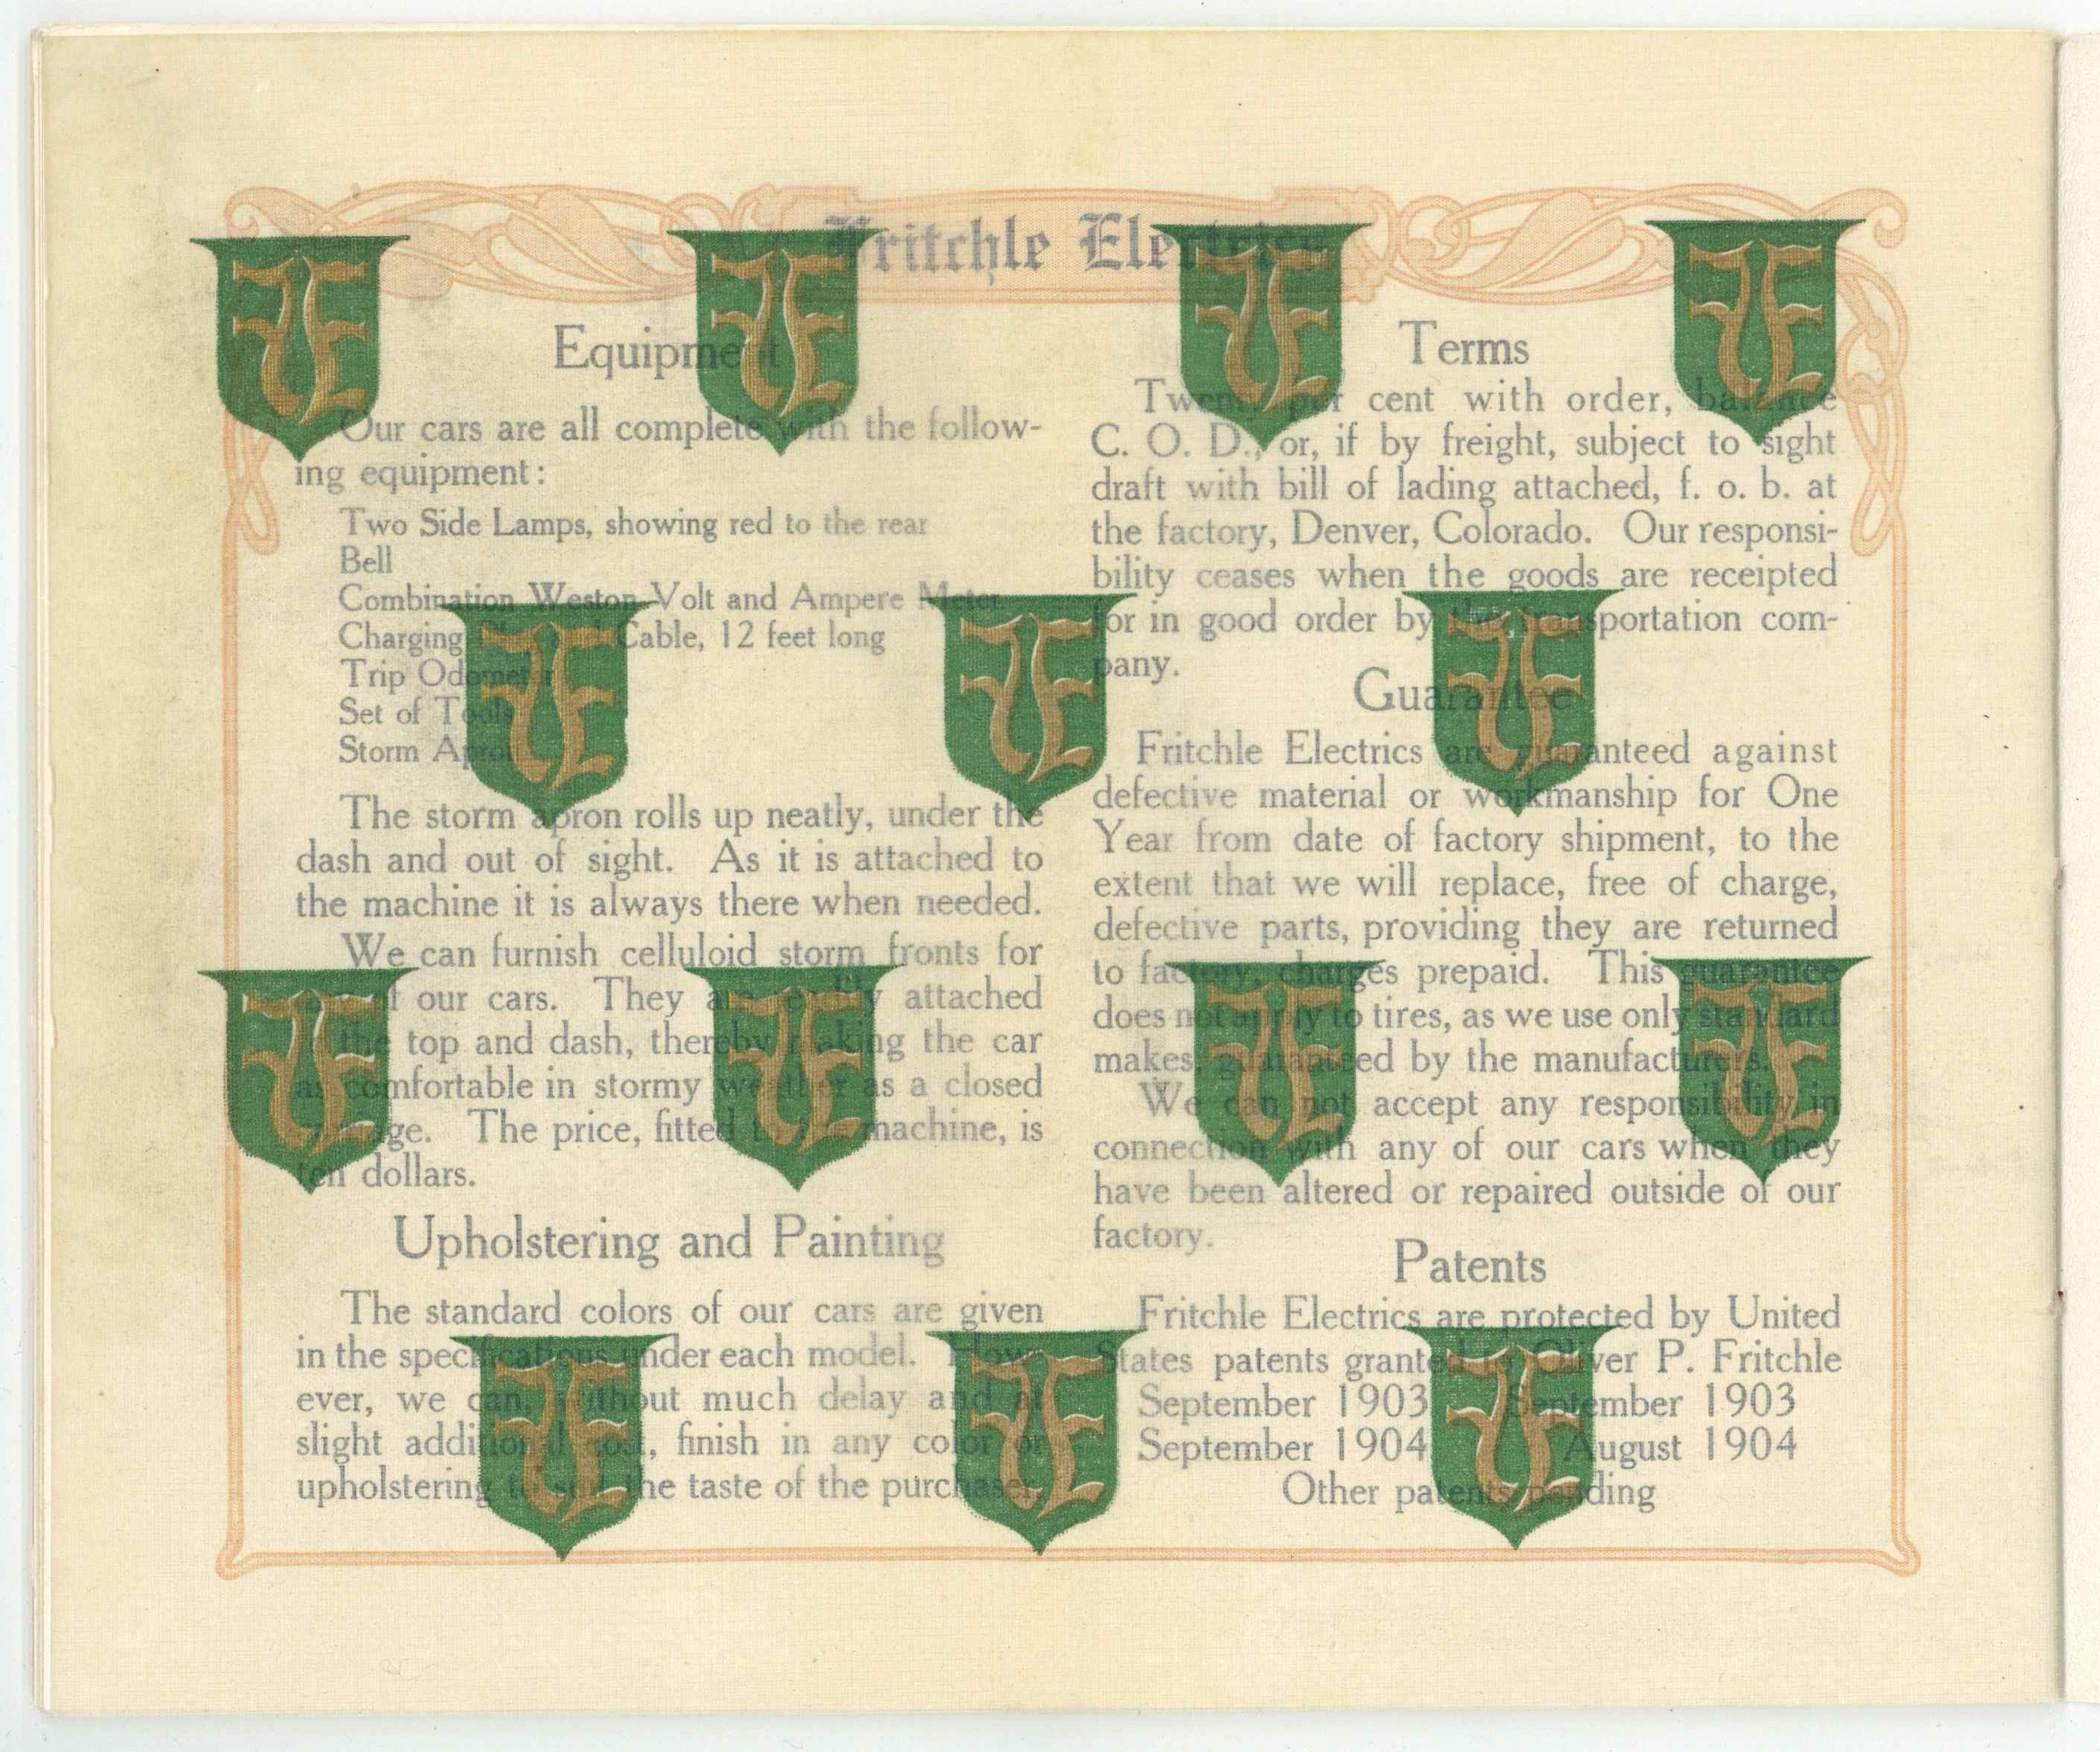 Fritchle Electrics
Equipment
Our cars are all complete with the follow-
ing equipment:
Two Side Lamps, showing red to the rear
Bell
Combination Weston Volt and Ampere Meter
Charging Plug and Cable, 12 feet long
Trip Odometer
Set of Tools
Storm Apron
The storm apron rolls up neatly, under the
dash and out of sight. As it is attached to
the machine it is always there when needed.
We can furnish celluloid storm fronts for
of our cars. They are attached
the top and dash, thereby making the car
as comfortable in stormy weather as a closed
The price, fitted to machine, is
ten dollars.
Upholstering and Painting
The standard colors of our cars are given
in the specifications under each model. How-
ever, we can, without much delay and at
slight additional cost, finish in any color or
upholstering to suit the taste of the purchaser.
Terms
Twenty per cent with order, balance
C. O. D., or, if by freight, subject to sight
draft with bill of lading attached, f. o. b. at
the factory, Denver, Colorado. Our responsi-
bility ceases when the goods are receipted
for in good order by the transportation com-
pany.
Guarantee
Fritchle Electrics are guaranteed against
defective material or workmanship for One
Year from date of factory shipment, to the
extent that we will replace, free of charge,
defective parts, providing they are returned
to factory, charges prepaid. This guarantee
does not apply to tires, as we use only standard
makes, guaranteed by the manufacturers.
We can not accept any responsibility in
connection with any of our cars when they
have been altered or repaired outside of our
factory.
Patents
Fritchle Electrics are protected by United
States patents granted to Oliver P. Fritchle
September 1903 September 1903
September 1904 August 1904
Other patents pending